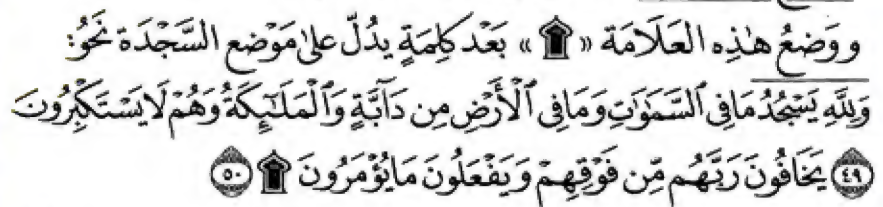 وَوَضْعُ هٰذِهِ العَلَامَة « ۩ » بَعْد كَلِمَةٍ يدُلّ علىٰ مَوْضِع السَّجْدَة نَحْوُ:
وَلِلَّهِ يَسْجُدُ مَا فِى ٱلسَّمَٰوَٰتِ وَمَا فِى ٱلْأَرْضِ مِن دَآبَّةٍ وَٱلْمَلَٰٓئِكَةُ وَهُمْ لَا يَسْتَكْبِرُونَ
﴿٤٩﴾ يَخَافُونَ رَبَّهُم مِّن فَوْقِهِمْ وَيَفْعَلُونَ مَا يُؤْمَرُونَ ۩ ﴿٥٠﴾